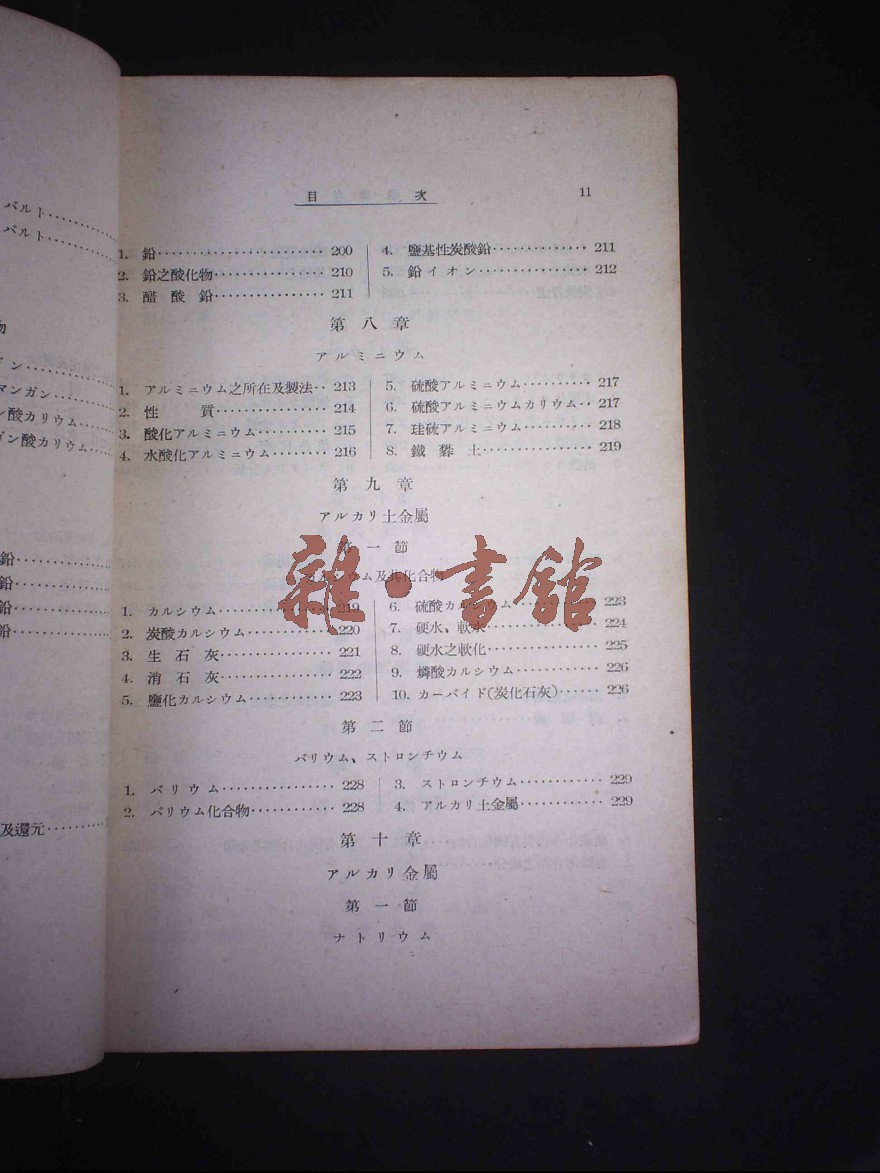 バルト
バルト
イン
マンガン
ン酸カリウム
ガン酸カリウム
鉛
鉛
鉛
鉛
及還元
目 次 11
1. 鉛 200
2. 鉛之酸化物 210
3. 醋酸鉛 211
4. 鹽基性炭酸鉛 211
5. 鉛イオン 212
第八章
アルミニウム
1. アルミニウム之所在及製法 213
2. 性質 214
3. 酸化アルミニウム 215
4. 水酸化アルミニウム 216
5. 硫酸アルミニウム 217
6. 硫酸アルミニウムカリウム 217
7. 珪硫アルミニウム 218
8. 鐵礬土 219
第九章
アルカリ土金屬
第一節
ウム及其化合物
1. カルシウム 219
2. 炭酸カルシウム 220
3. 生石灰 221
4. 消石灰 222
5. 鹽化カルシウム 223
6. 硫酸カルシウム 223
7. 硬水、軟水 224
8. 硬水之軟化 225
9. 燐酸カルシウム 226
10. カーバイド(炭化石灰) 226
第二節
バリウム、ストロンチウム
1. バリウム 228
2. バリウム化合物 228
3. ストロンチウム 229
4. アルカリ土金屬 229
第十章
アルカリ金屬
第一節
ナトリウム
雜·書館